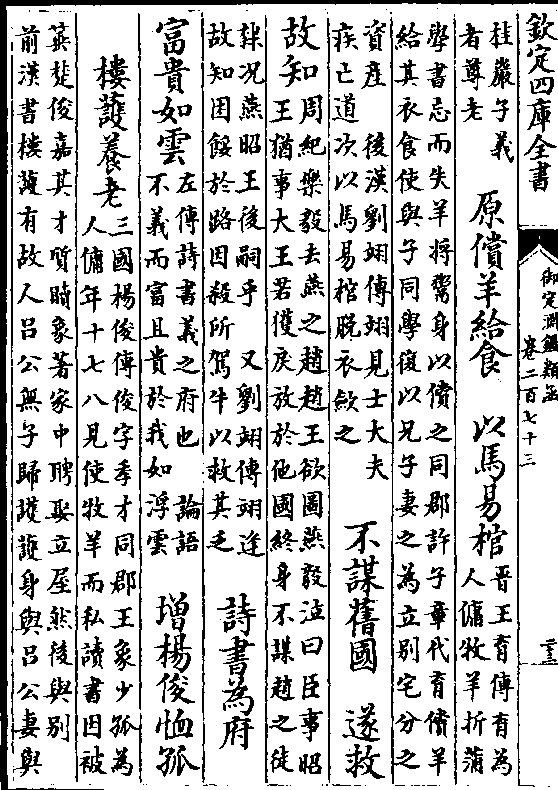 欽定四庫全書
御定淵鑑類函
卷二百七十三
桂嚴子義
者尊老
原償羊給食　以馬易棺
晉王育傳育為
人傭牧羊折蒲
學書忘而失羊將鬻身以償之同郡許子章代育償羊
給其衣食使與子同學復以兄子妻之為立别宅分之
資產　後漢劉翊傳翊見士大夫
疾亡道次以馬易棺脱衣斂之
不謀舊國　遂救
故知
周紀樂毅去燕之趙趙王欲圖燕毅泣曰臣事昭
王猶事大王若獲戾放於他國終身不謀趙之徒
隸況燕昭王後嗣乎　又劉翊傳翊途
故知困餒於路因殺所駕牛以救其乏
詩書為府
富貴如雲
左傳詩書義之府也　論語
不義而富且貴於我如浮雲
增楊俊恤孤
樓護養老
三國楊俊傳俊字季才同郡王象少孤為
人傭年十七八見使牧羊而私讀書因被
箠楚俊嘉其才質時象著家中聘娶立屋然後與别
前漢書樓護有故人吕公無子歸護護身與吕公妻與